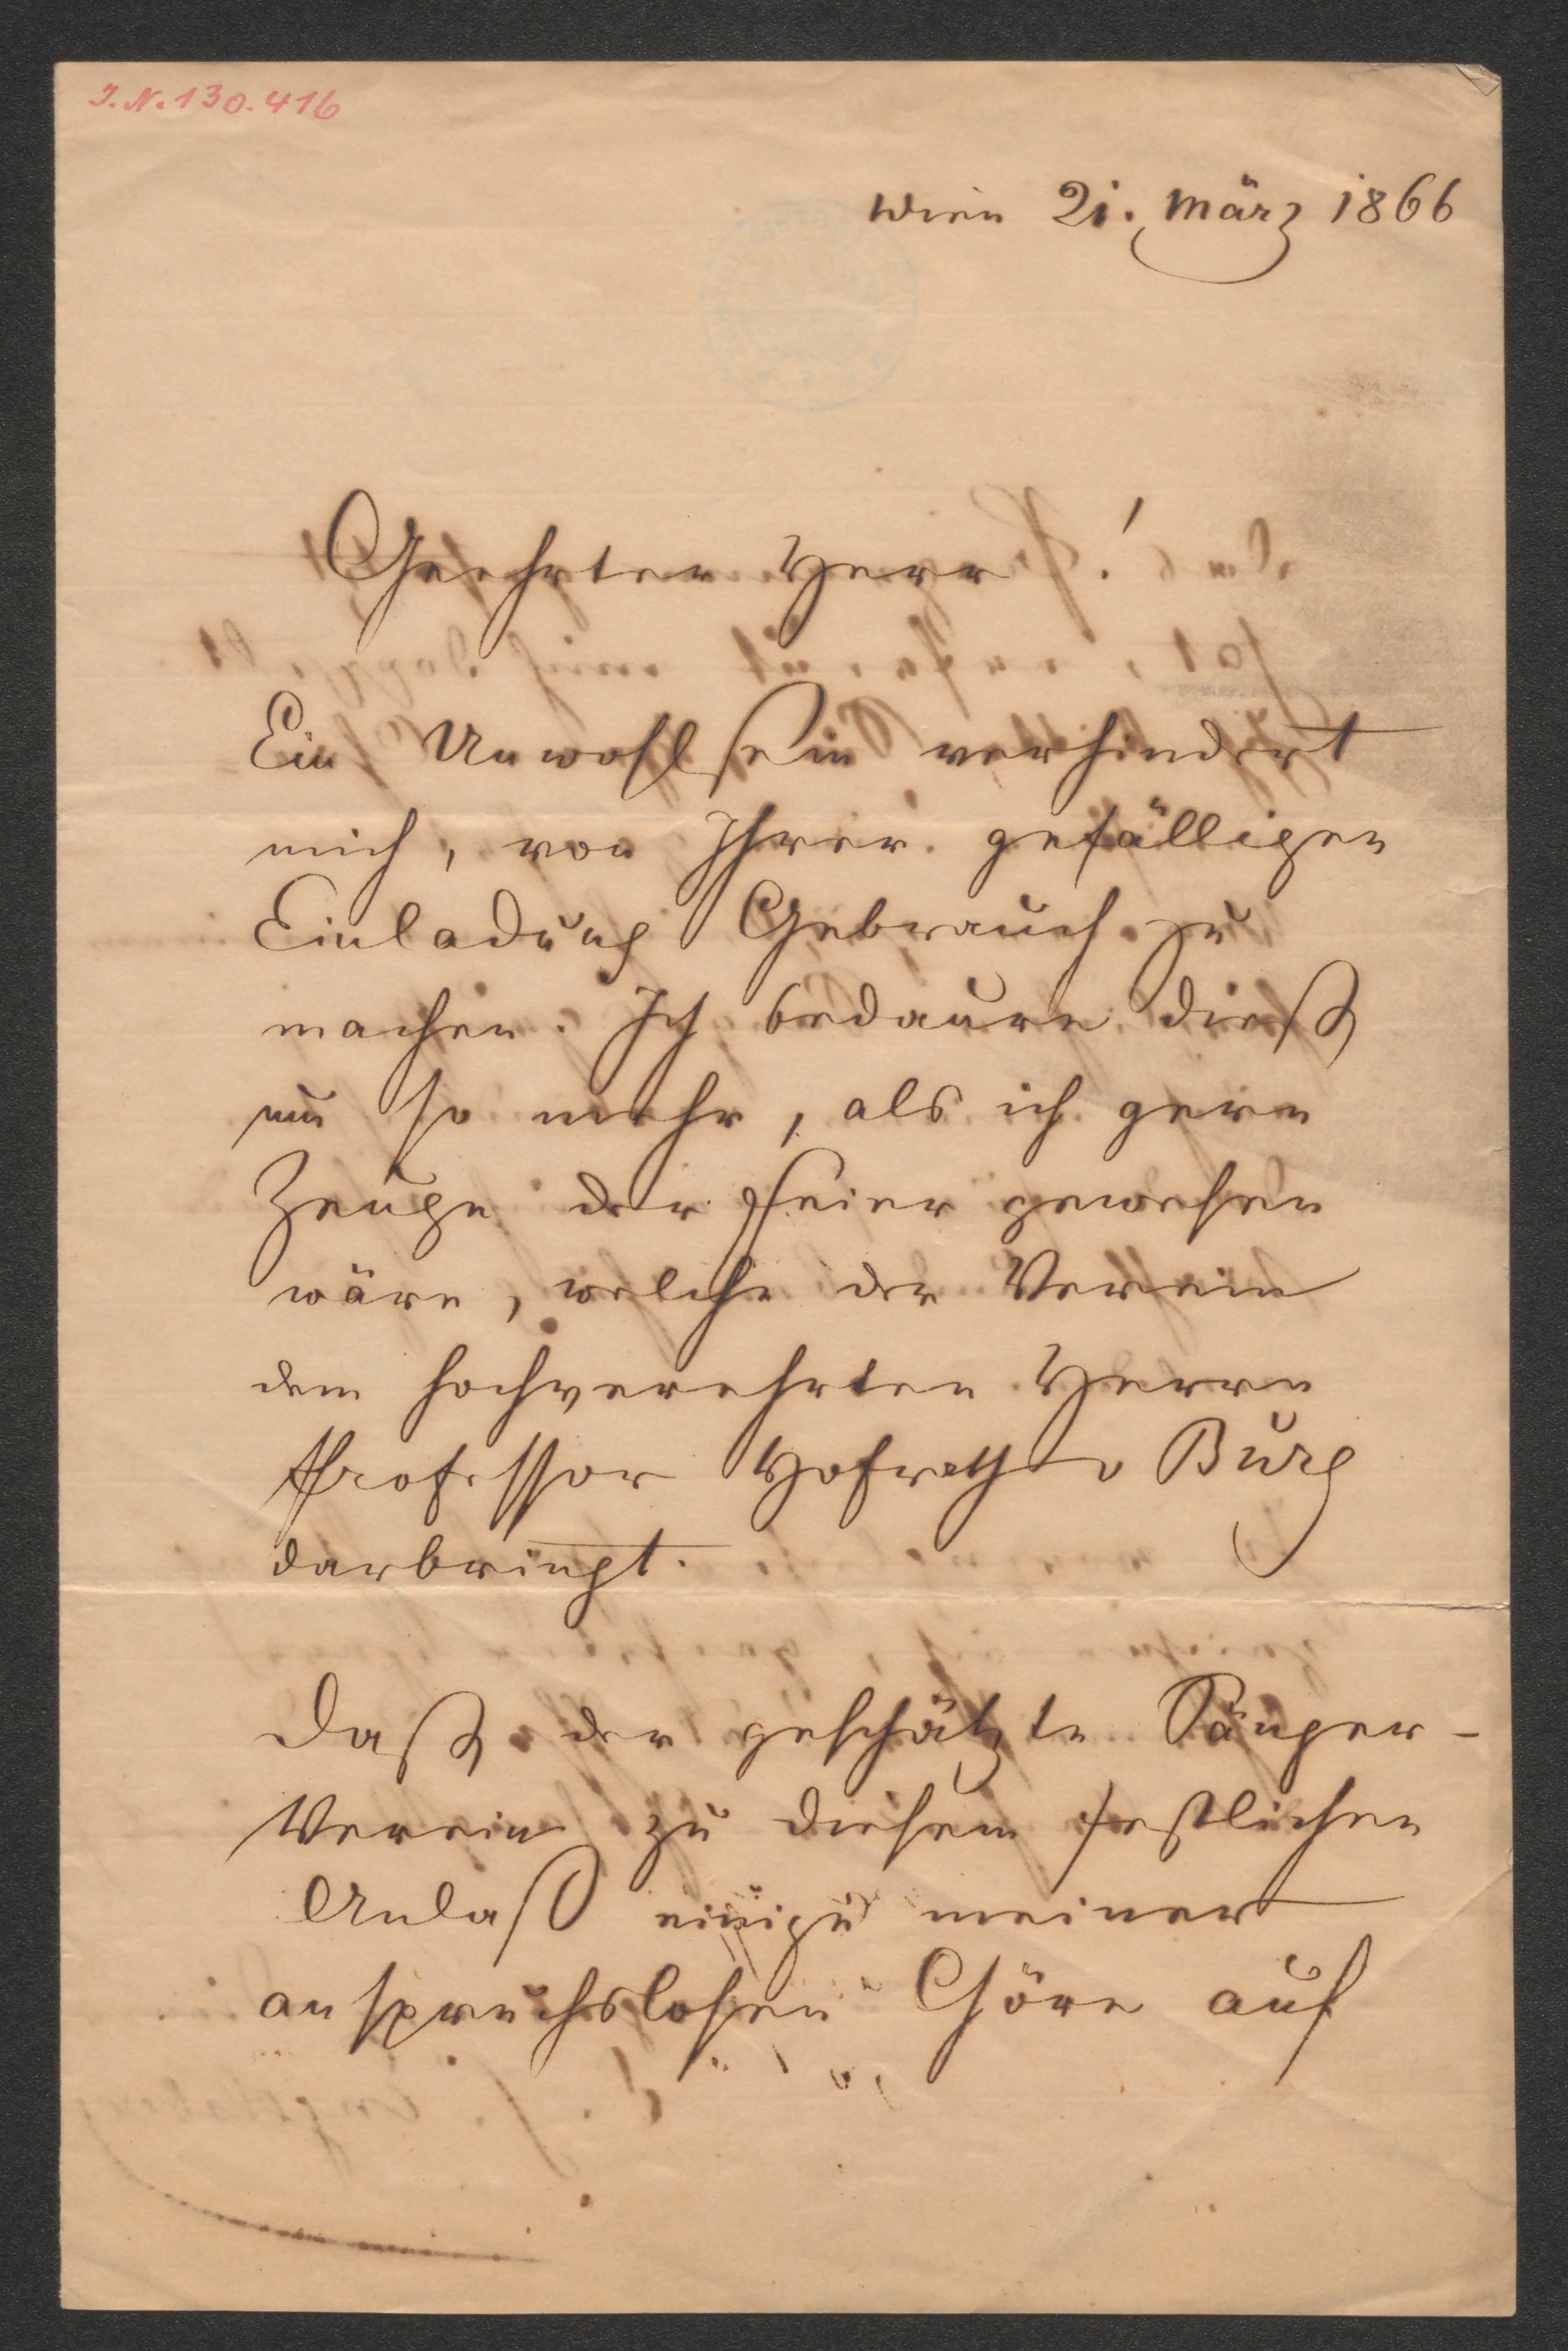 J.N. 130.416
Wien 21. März 1866
Geehrter Herr!
Ein Unwohlsein verhindert
mich, von Ihrer gefälligen
Einladung Gebrauch zu
machen. Ich bedaure dieß
um so mehr, als ich gern
Zeuge der Feier gewesen
wäre, welche der Verein
dem hochverehrten Herrn
Professor Hofrath v Burg
darbringt.
Daß der geschätzte Sänger-
Verein zu diesem festlichen
Anlaß einige meiner
anspruchslosen Chöre auf